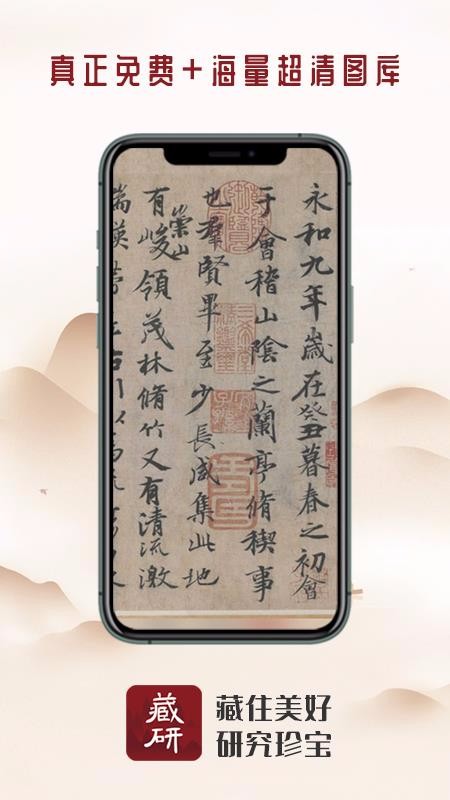 真正免费+海量超清图库
永和九年歲在癸丑暮春之初會
于會稽山陰之蘭亭脩稧事
也羣賢畢至少長咸集此地
有崇山峻領茂林脩竹又有清流激
湍暎帶
藏研
藏住美好
研究珍宝